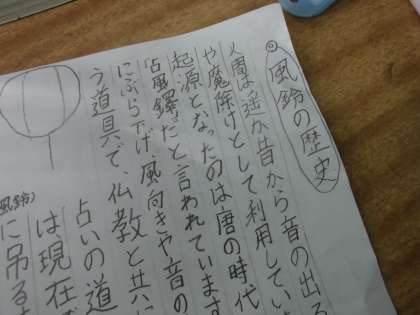 風鈴の歴史
人間は遥か昔から音の出る
や魔除けとして利用してい
起源となったのは唐の時代
占風鐸だと言われています
にぶら下げ風向きや音の
う道具で、仏教と共に
占いの道
は現在
に吊る
風鈴)